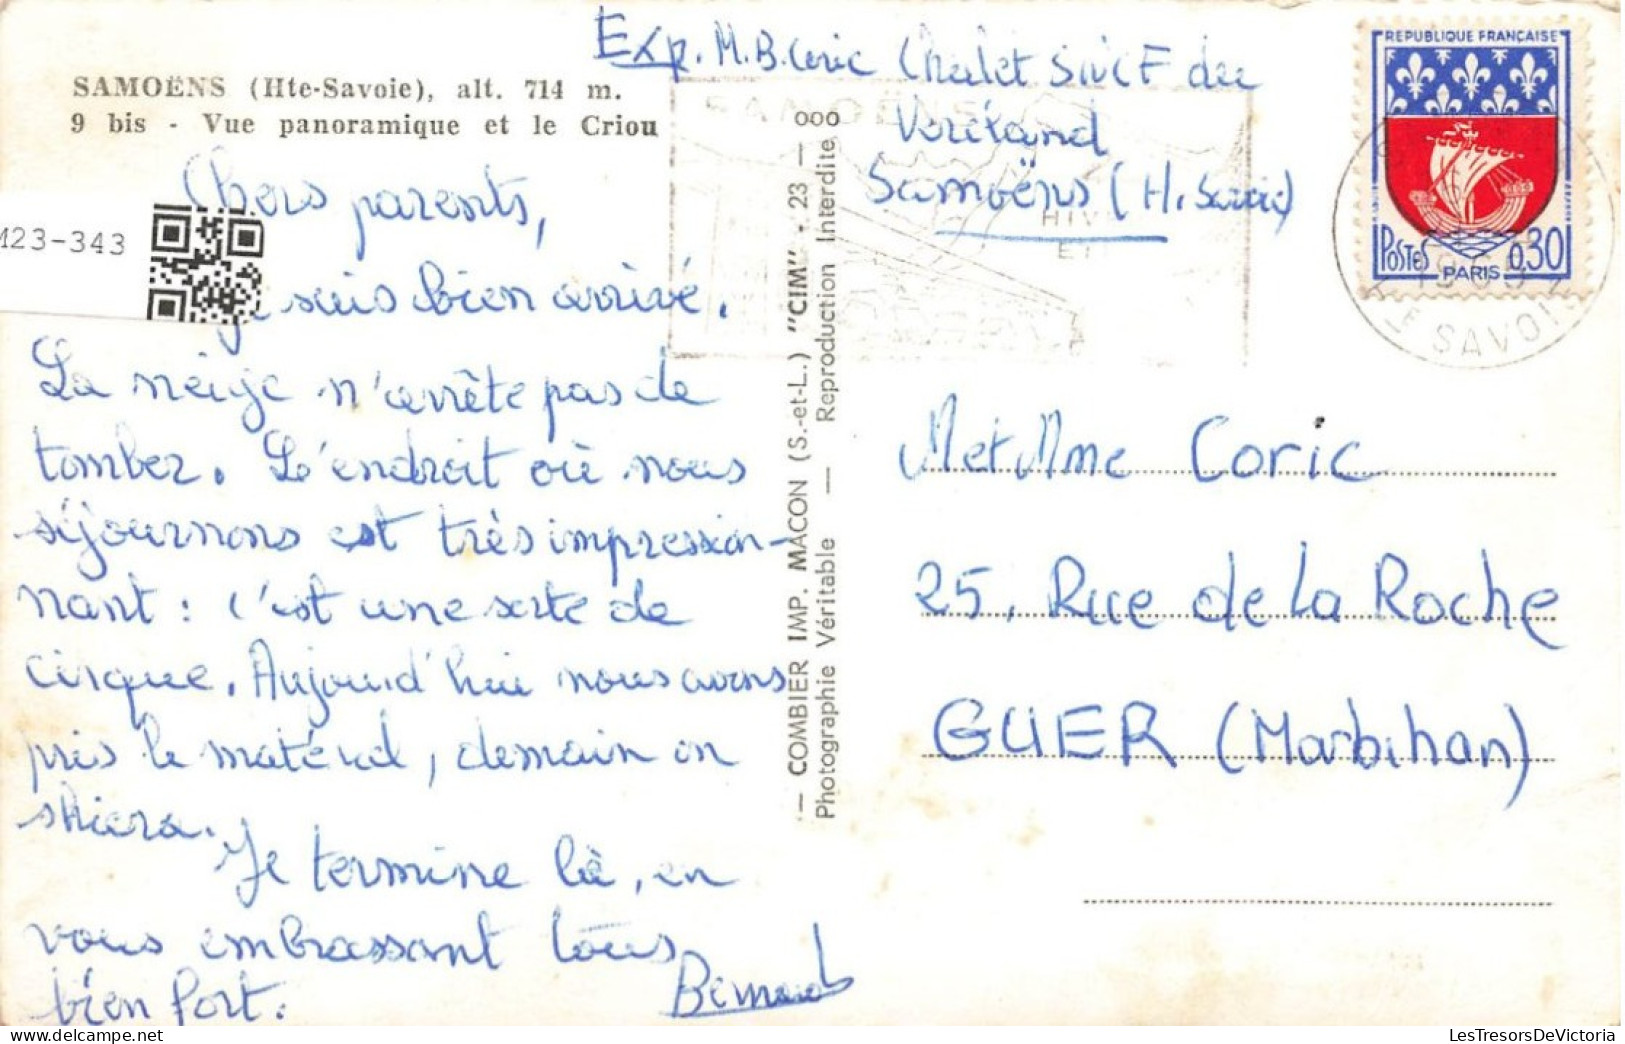 SAMOËNS (Hte-Savoie), alt. 714 m.
9 bis - Vue panoramique et le Criou
M23-343
Exp. M.B. Coric Chalet SNCF du
Samoëns (H. Savoie)
SAMOËNS
HIV
ET
REPUBLIQUE FRANÇAISE
POSTES PARIS 0,30
TE SAVOIE
Chers parents,
Je suis bien arrivé.
La neige n'arrête pas de
tomber. L'endroit où nous
séjournons est très impression-
nant : c'est une sorte de
cirque. Aujourd'hui nous avons
pris le matériel, demain on
skiera.
Je termine là, en
vous embrassant tous
bien fort.
Bernard
— COMBIER IMP. MACON (S.-et-L.) "CIM" - 23 — ooo
Photographie Véritable — Reproduction Interdite
M et Mme Coric
25, Rue de La Roche
GUER (Morbihan)
LesTresorsDeVictoria